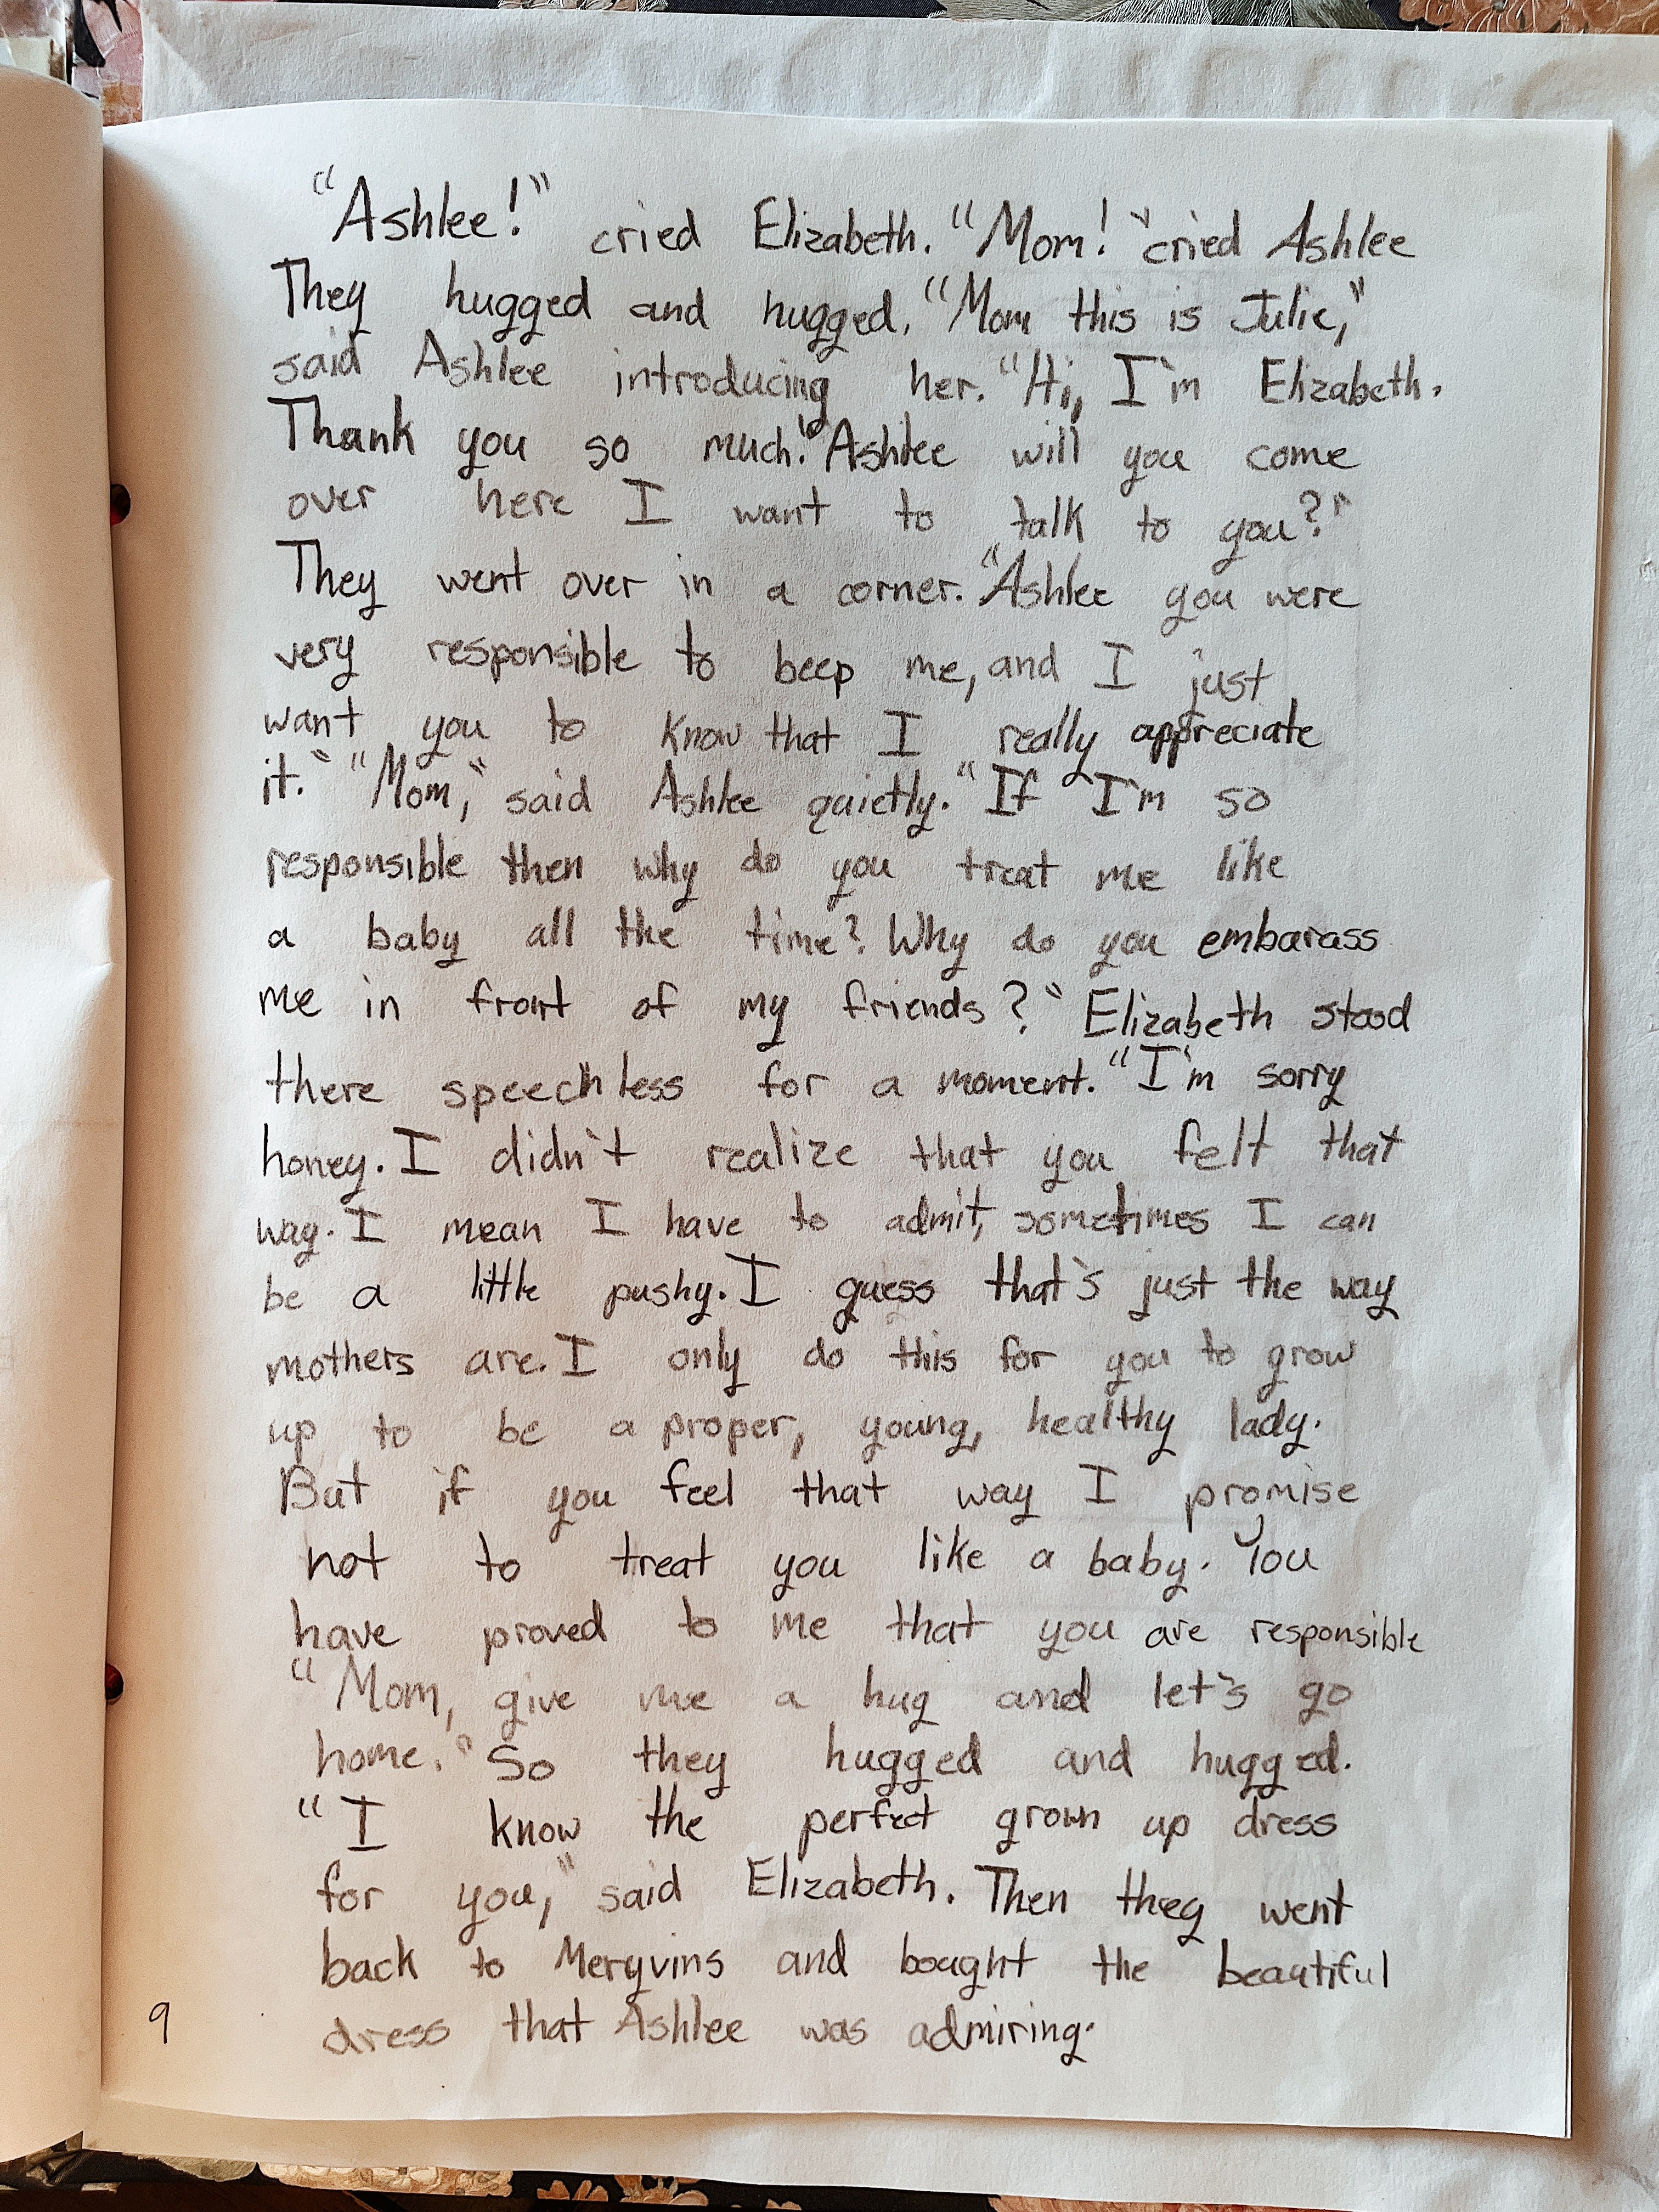 "Ashlee!" cried Elizabeth. "Mom!" cried Ashlee
They hugged and hugged. "Mom this is Julie,"
said Ashlee introducing her. "Hi, I'm Elizabeth.
Thank you so much." Ashlee will you come
over here I want to talk to you?"
They went over in a corner. "Ashlee you were
very responsible to beep me, and I just
want you to know that I really appreciate
it." "Mom," said Ashlee quietly. "If I'm so
responsible then why do you treat me like
a baby all the time? Why do you embarass
me in front of my friends?" Elizabeth stood
there speechless for a moment. "I'm sorry
honey. I didn't realize that you felt that
way. I mean I have to admit, sometimes I can
be a little pushy. I guess that's just the way
mothers are. I only do this for you to grow
up to be a proper, young, healthy lady.
But if you feel that way I promise
not to treat you like a baby. You
have proved to me that you are responsible
"Mom, give me a hug and let's go
home." So they hugged and hugged.
"I know the perfect grown up dress
for you," said Elizabeth. Then they went
back to Meryvins and bought the beautiful
dress that Ashlee was admiring.
9